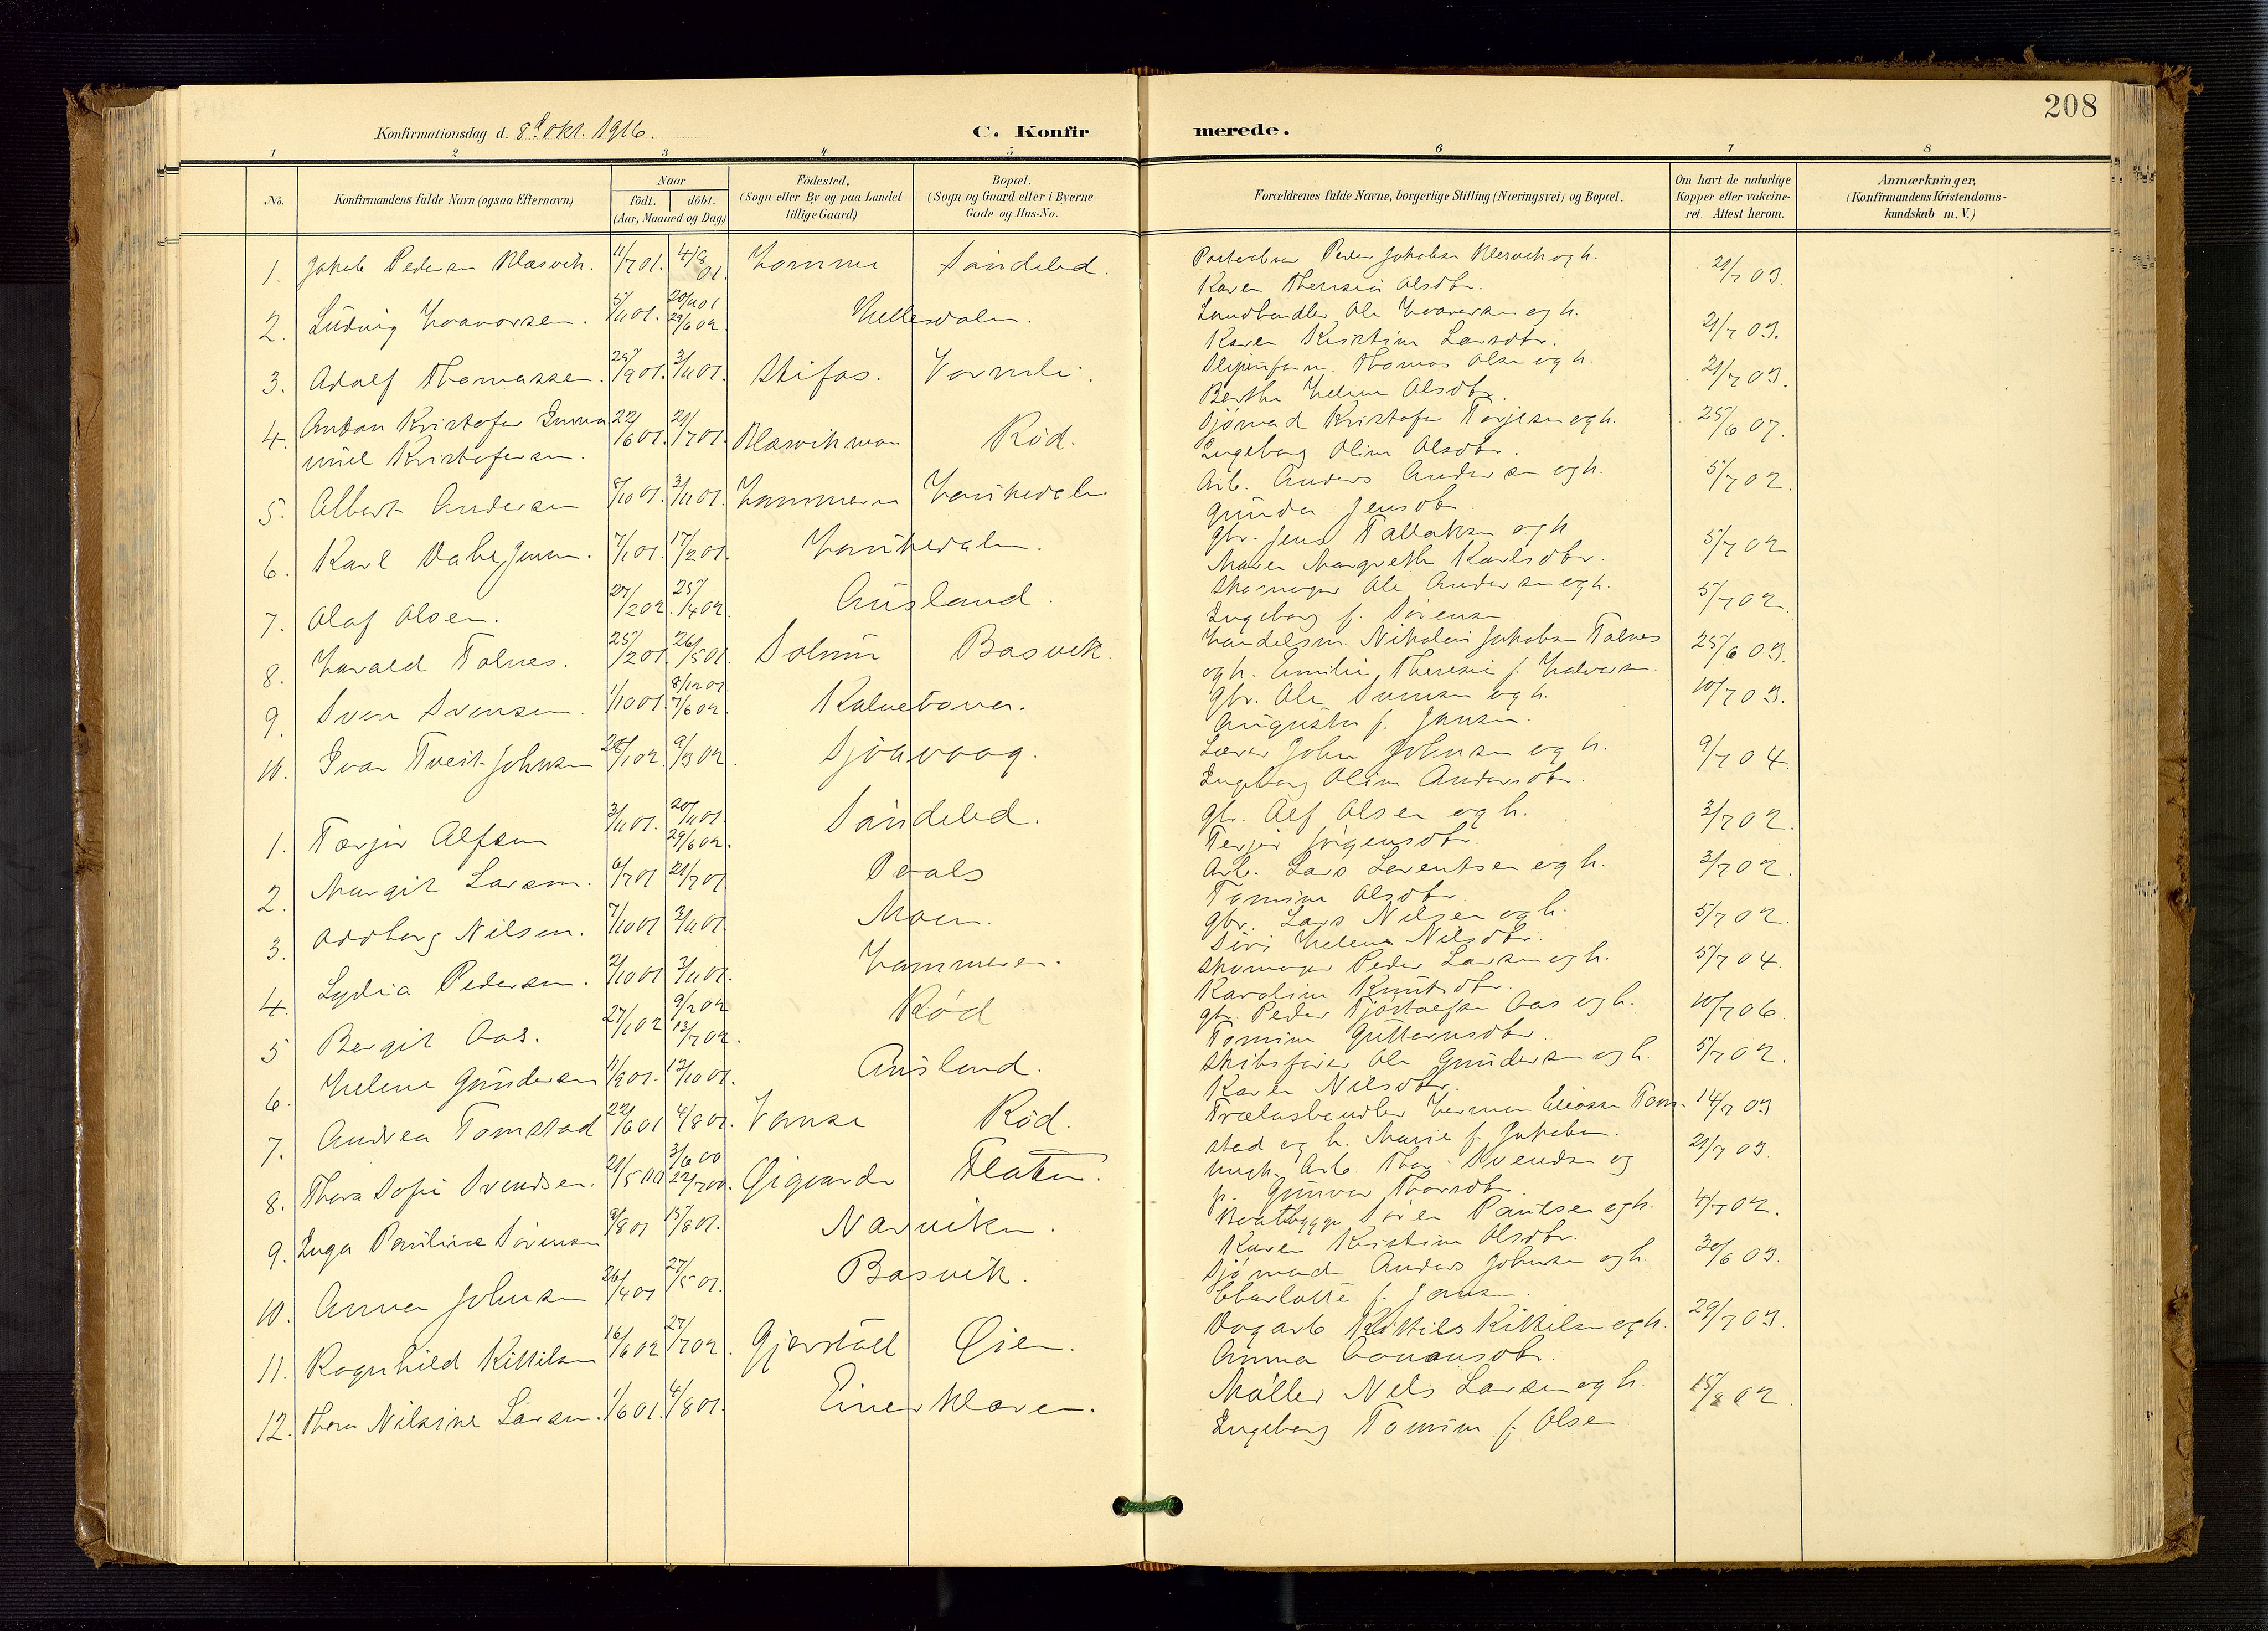 208
Konfirmationsdag d. 8d Okt. 1916.
C. Konfirmerede.
1 2 3 4 5 6 7 8
No. Konfirmandens fulde Navn (ogsaa Efternavn) Naar født. døbt. (Aar, Maaned og Dag) Födested. (Sogn eller By og paa Landet tillige Gaard) Bopæl. (Sogn og Gaard eller i Byerne Gade og Hus-No.
Forældrenes fulde Navne, borgerlige Stilling (Næringsvei) og Bopæl. Om havt de naturlige Kopper eller vakcineret. Attest herom. Anmærkninger. (Konfirmandens Kristendomskundskab m. V.)
1. Jakob Pedersen Klæsvik. 11/7 01. 4/8 01. Homme Søndeled. Peder Jakobsen Klesvik og h. 21/7 03.
Karen Theresia Olsdtr.
2. Ludvig Hovorsen. 5/11 01. 20/11 01 29/6 02. Hellesdalen. Landhandler Ole og h. 21/7 03.
Karen Kristine Larsdtr.
3. Adolf Thomassen. 25/9 01. 3/11 01. Stifos. Vormli. Thomas Olsen og h. 21/7 03.
Berthe Helene Olsdtr.
4. Anton Kristofer Imma- 22/6 01. 21/7 01. Klæsvikmoen Rød. Sjømand Kristofer Terjesen og h. 25/6 07.
nuel Kristofersen. Ingeborg Oline Olsdtr.
5. Albert Andersen 8/10 01. 3/11 01. Hommeren Haukedalen Arb. Anders Andersen og h. 5/7 02.
Gunda Jensdtr.
6. Karl Dahl Jensen. 7/1 01. 17/2 01. Haukedalen. Gbr. Jens Tallaksen og h 5/7 02
Maren Margrethe Karlsdtr.
7. Olaf Olsen. 27/2 02. 25/4 02. Ausland. Skomager Ole Andersen og h. 5/7 02.
Ingeborg f. Sørensen
8. Harald Tolnes. 25/2 01. 26/5 01. Solum Basvik. Handelsm. Nikolai Jakobsen Tolnes 25/6 03.
og h. Emilie Theresie f. Halvorsen.
9. Sven Svensen. 1/10 01 8/12 01 7/6 02. Kalvetona. Gbr. Ole Svensen og h. 10/7 03.
Augusta f. Jansen.
10. Ivar Tveit Johnsen 28/1 02. 9/3 02. Sjøavaag. Lærer John Johnsen og h. 9/7 04.
Ingeborg Oline Andersdtr.
1. Terjer Alfsen 3/11 01. 20/11 01. 29/6 02. Søndeled. Gbr. Alf Olsen og h. 3/7 02.
Terjer Jörgensdtr.
2. Margit Larsen. 6/7 01 21/7 01 Peals Arb. Lars Lorentsen og h. 3/7 02.
Tomine Olsdtr.
3. Oddborg Nilsen. 7/10 01 3/11 01. Moen. Gbr. Lars Nilsen og h. 5/7 02.
Siri Helene Nilsdtr.
4. Lydia Pedersen. 2/10 01 3/11 01. Hommeren. Skomager Peder Larsen og h. 5/7 04.
Karoline Knutsdtr.
5 Bergit Aas. 27/1 02 9/2 02 13/7 02. Rød Gbr. Peder Tjøstolfsen Aas og h. 10/7 06.
Tomine Guttormsdtr.
6. Helene Gundersen 11/9 01. 12/10 01. Ausland. Skibsfører Ole Gundersen og h. 5/7 02.
Karen Nilsdtr.
7. Andrea Tomstad 22/6 01 4/8 01. Vanse Rød. Trælasthandler Herman Eliassen Tom- 14/7 03
stad og h. Marie f. Jakobsen.
8. Thora Sofie Svendsen. 21/5 00 3/6 00 22/7 00. Øigarden Flaten. Ungk. Arb. Thor Svendsen og 21/7 03.
p. Gunvor Thorsdtr.
9. Inga Pauline Sørensen 9/8 01 15/8 01. Narviken. Baatbygger Søren Paulsen og h. 4/7 02.
Karen Kristine Olsdtr.
10. Anna Johnsen 26/4 01 27/5 01. Basvik. Sjømand Anders Johnsen og h. 30/6 03.
Charlotte f. Jansen.
11. Ragnhild Kittilsen 16/6 02 27/7 02. Gjerstad Øien. Dagarb Kittils Kittilsen og h. 29/7 03.
Anna Aanonsdtr.
12. Thora Nilsine Larsen. 1/6 01. 4/8 01. Einerkleven. Møller Nels Larsen og h. 15/8 02
Ingeborg Tomine f. Olsen